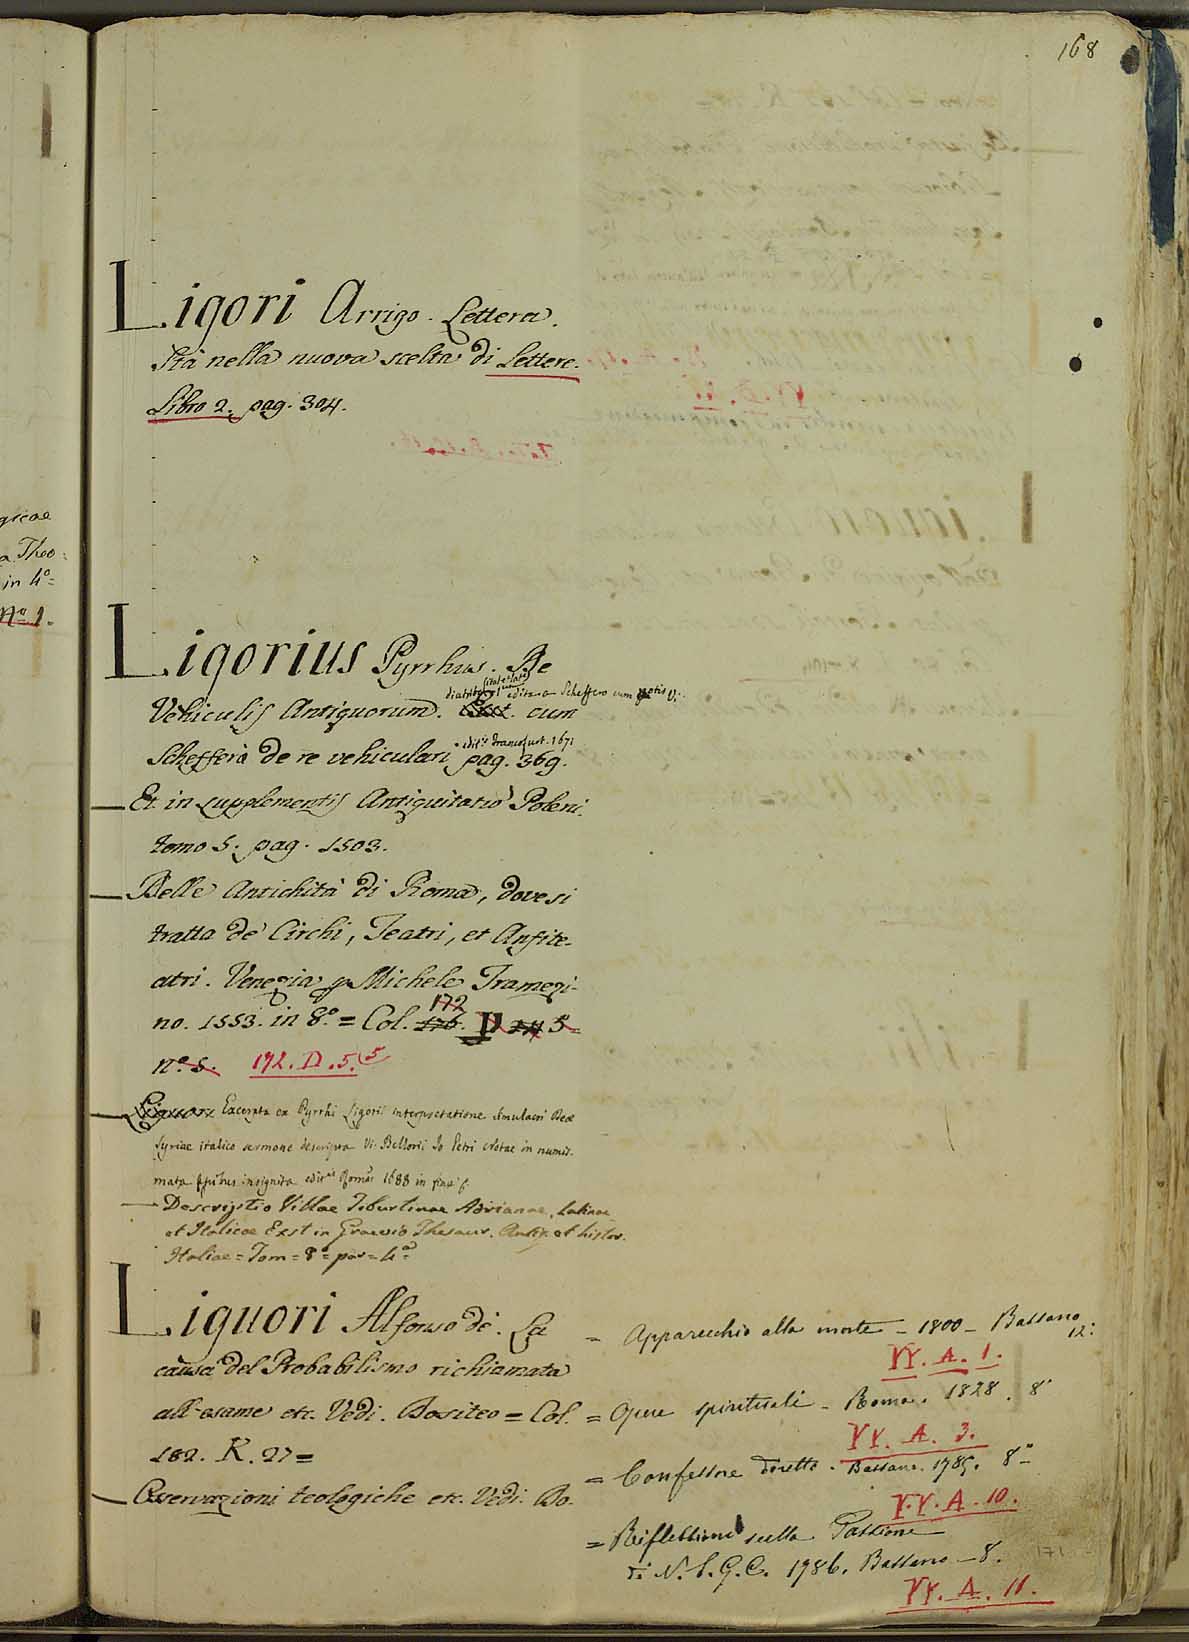 168
Ligori Arrigo. Lettera.
Stà nella nuova scelta di Lettere.
Libro 2. pag. 304.
Ligorius Pyrrhus. De
edita a Scheffero cum notis
Vehiculis Antiquorum. cum
edit. Francofurt. 1671
Scheffero de re vehiculari pag. 369.
Et in supplementis Antiquitatũ Poleni.
tomo 5. pag. 1503.
Belle Antichità di Roma, dove si
tratta de' Circhi, Teatri, et Anfite-
atri. Venezia p Michele Tramezi-
172
no. 1553. in 8.º = Col. 176. D 5 =
nº. 5. 172. D. 5. 5
Excerpta ex Pyrrhi Ligorii interpretatione simulacri Deae
Syriae italico sermone descripta Vi. Bellorii Jo Petri Notae in numis.
mata Apibus insignita edit. Romae 1688 in fine
Descriptio Villae Tiburtinae Adrianae, Latinae
et Italicae Exst in Graevio Thesaur. Antiq. et histor.
Italiae = Tom = 8º par = 4ª
Liquori Alfonso de'. La
causa del Probabilismo richiamata
all'esame etc. Vedi. Dositeo = Col.
182. K. 27 =
Osservazioni teologiche etc. Vedi. Do.
= Apparecchio alla morte - 1800 - Bassano
12:
YY. A. 1.
= Opere spirituali - Roma. 1828. 8º
YY. A. 3.
= Confessore diretto. Bassano. 1785. 8º
YY. A. 10.
= Riflessioni sulla Passione
di N. S. G. C. 1786. Bassano - 8.
YY. A. 11.
171
gicae
a Theo:
in 4º =
Nº 1.